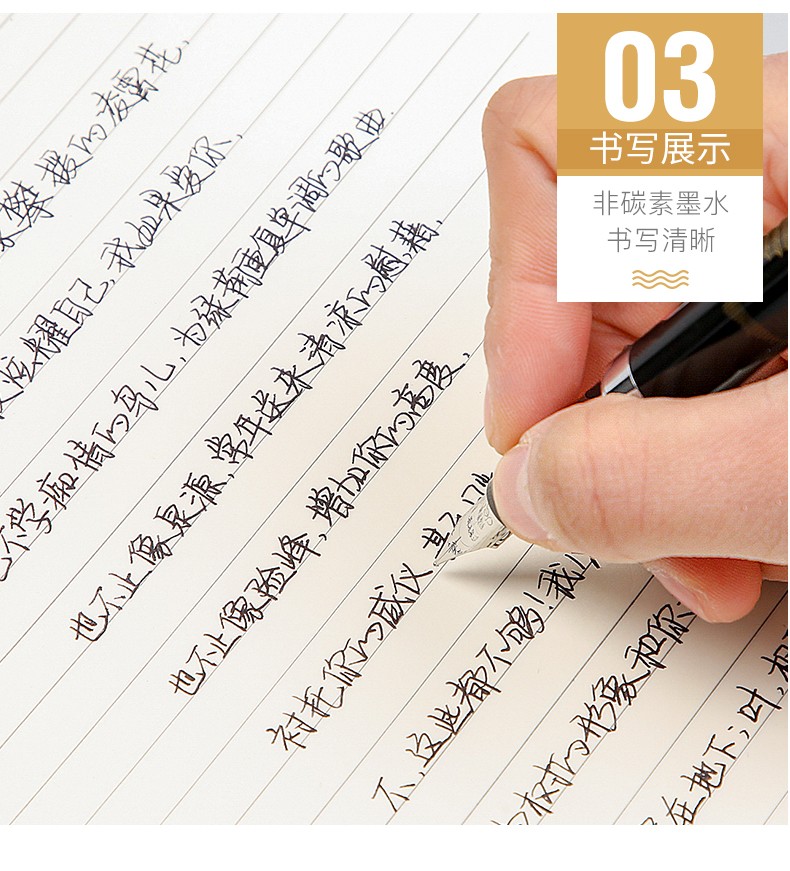 03
书写展示
非碳素墨水
书写清晰
攀援的凌霄花
炫耀自己,我如果爱你,
不学痴情的鸟儿,为绿荫重复单调的歌曲.
也不止像泉源,常年送来清凉的慰藉,
也不止像险峰,增加你的高度,
衬托你的威仪
不,这些都不够!我
树的形象和你
在地下;叶,相